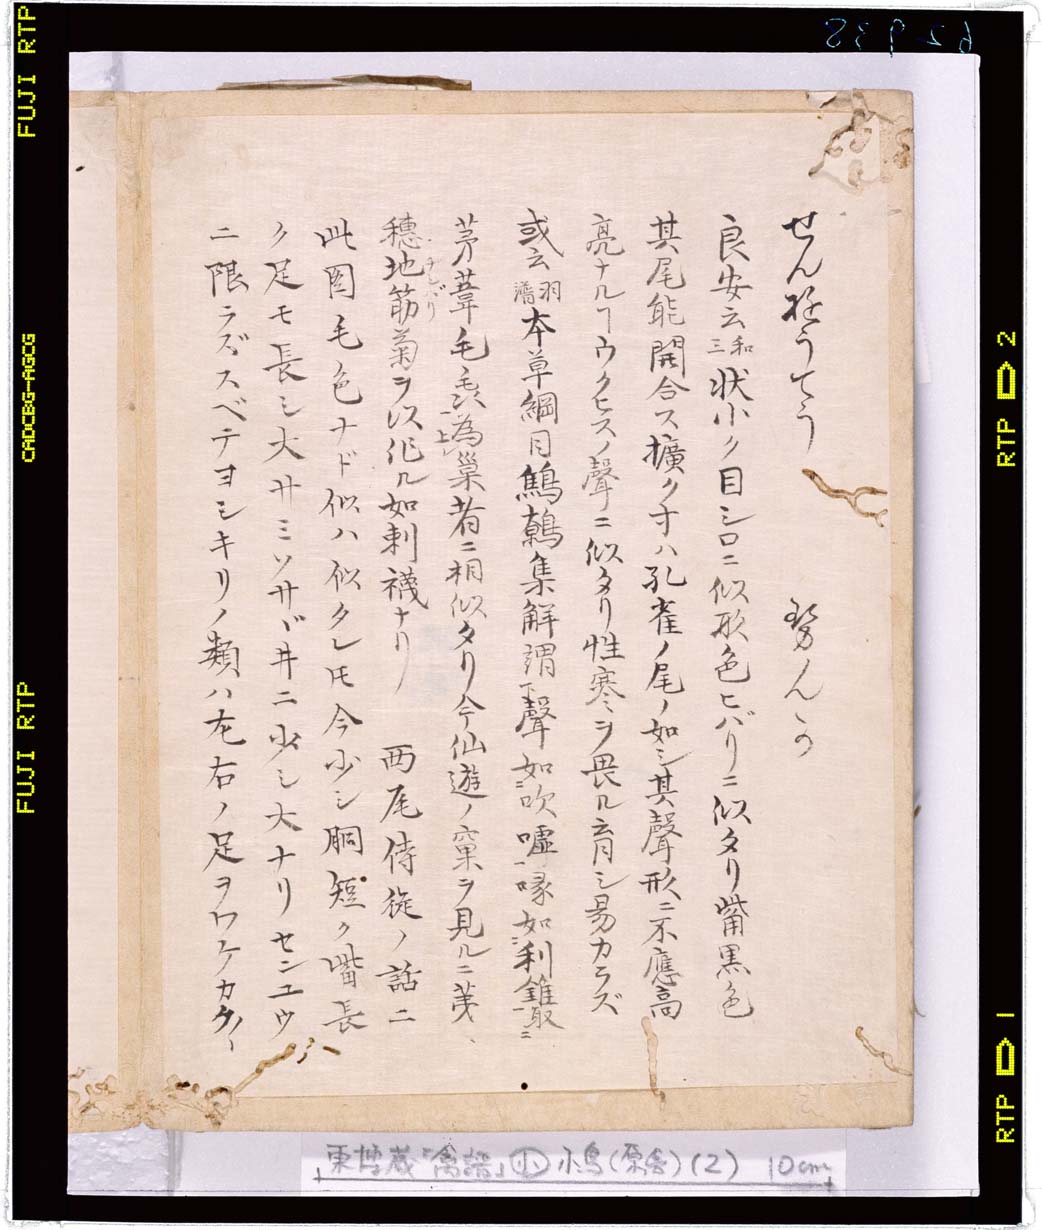 せんゆうてう　勢んゝか
良安云 和三 状小ク目シロニ似形色ヒバリニ似タリ觜黒色
其尾能開合ス擴クヿハ孔雀ノ尾ノ如シ其聲形ニ不應高
亮ナルヿウクヒスノ聲ニ似タリ性寒ヲ畏ル育シ易カラズ
或云 羽譜 本草綱目鷦鷯集解謂下聲如ニ吹嘘一喙如ニ利錐一取ニ
茅葦毛毳一為巣者上ニ相似タリ今仙遊ノ窠ヲ見ルニ茅、
穗地筋菊ヲ以作ル如刺襪ナリ
チシバリ
西尾侍從ノ話ニ
此図毛色ナド似ハ似タレ𪜈今少シ胴短ク嘴長
ク足モ長シ大サミソサヾ井ニ少シ大ナリセンユウ
ニ限ラズスベテヨシキリノ類ハ左右ノ足ヲワケカタ〱
東博蔵「禽譜」小 小鳥(原舎)(2) 10cm
62938
FUJI RTP
CADCBG-AGCG
FUJI RTP
RTP 2
RTP 1